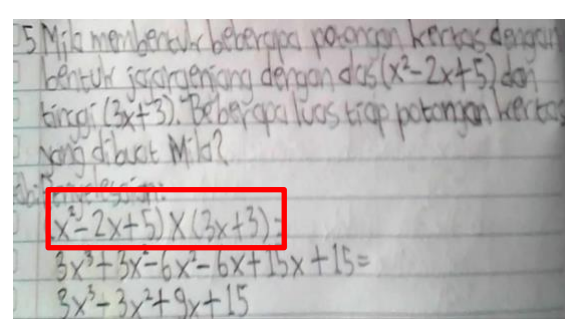 5 Mila membentuk beberapa potongan kertas dengan
bentuk jajargenjang dengan alas (x²-2x+5) dan
tinggi (3x+3). Beberapa luas tiap potongan kertas
yang dibuat Mila?
Penyelesaian:
x²-2x+5)X(3x+3)=
3x³+3x²-6x²-6x+15x+15=
3x³-3x²+9x+15